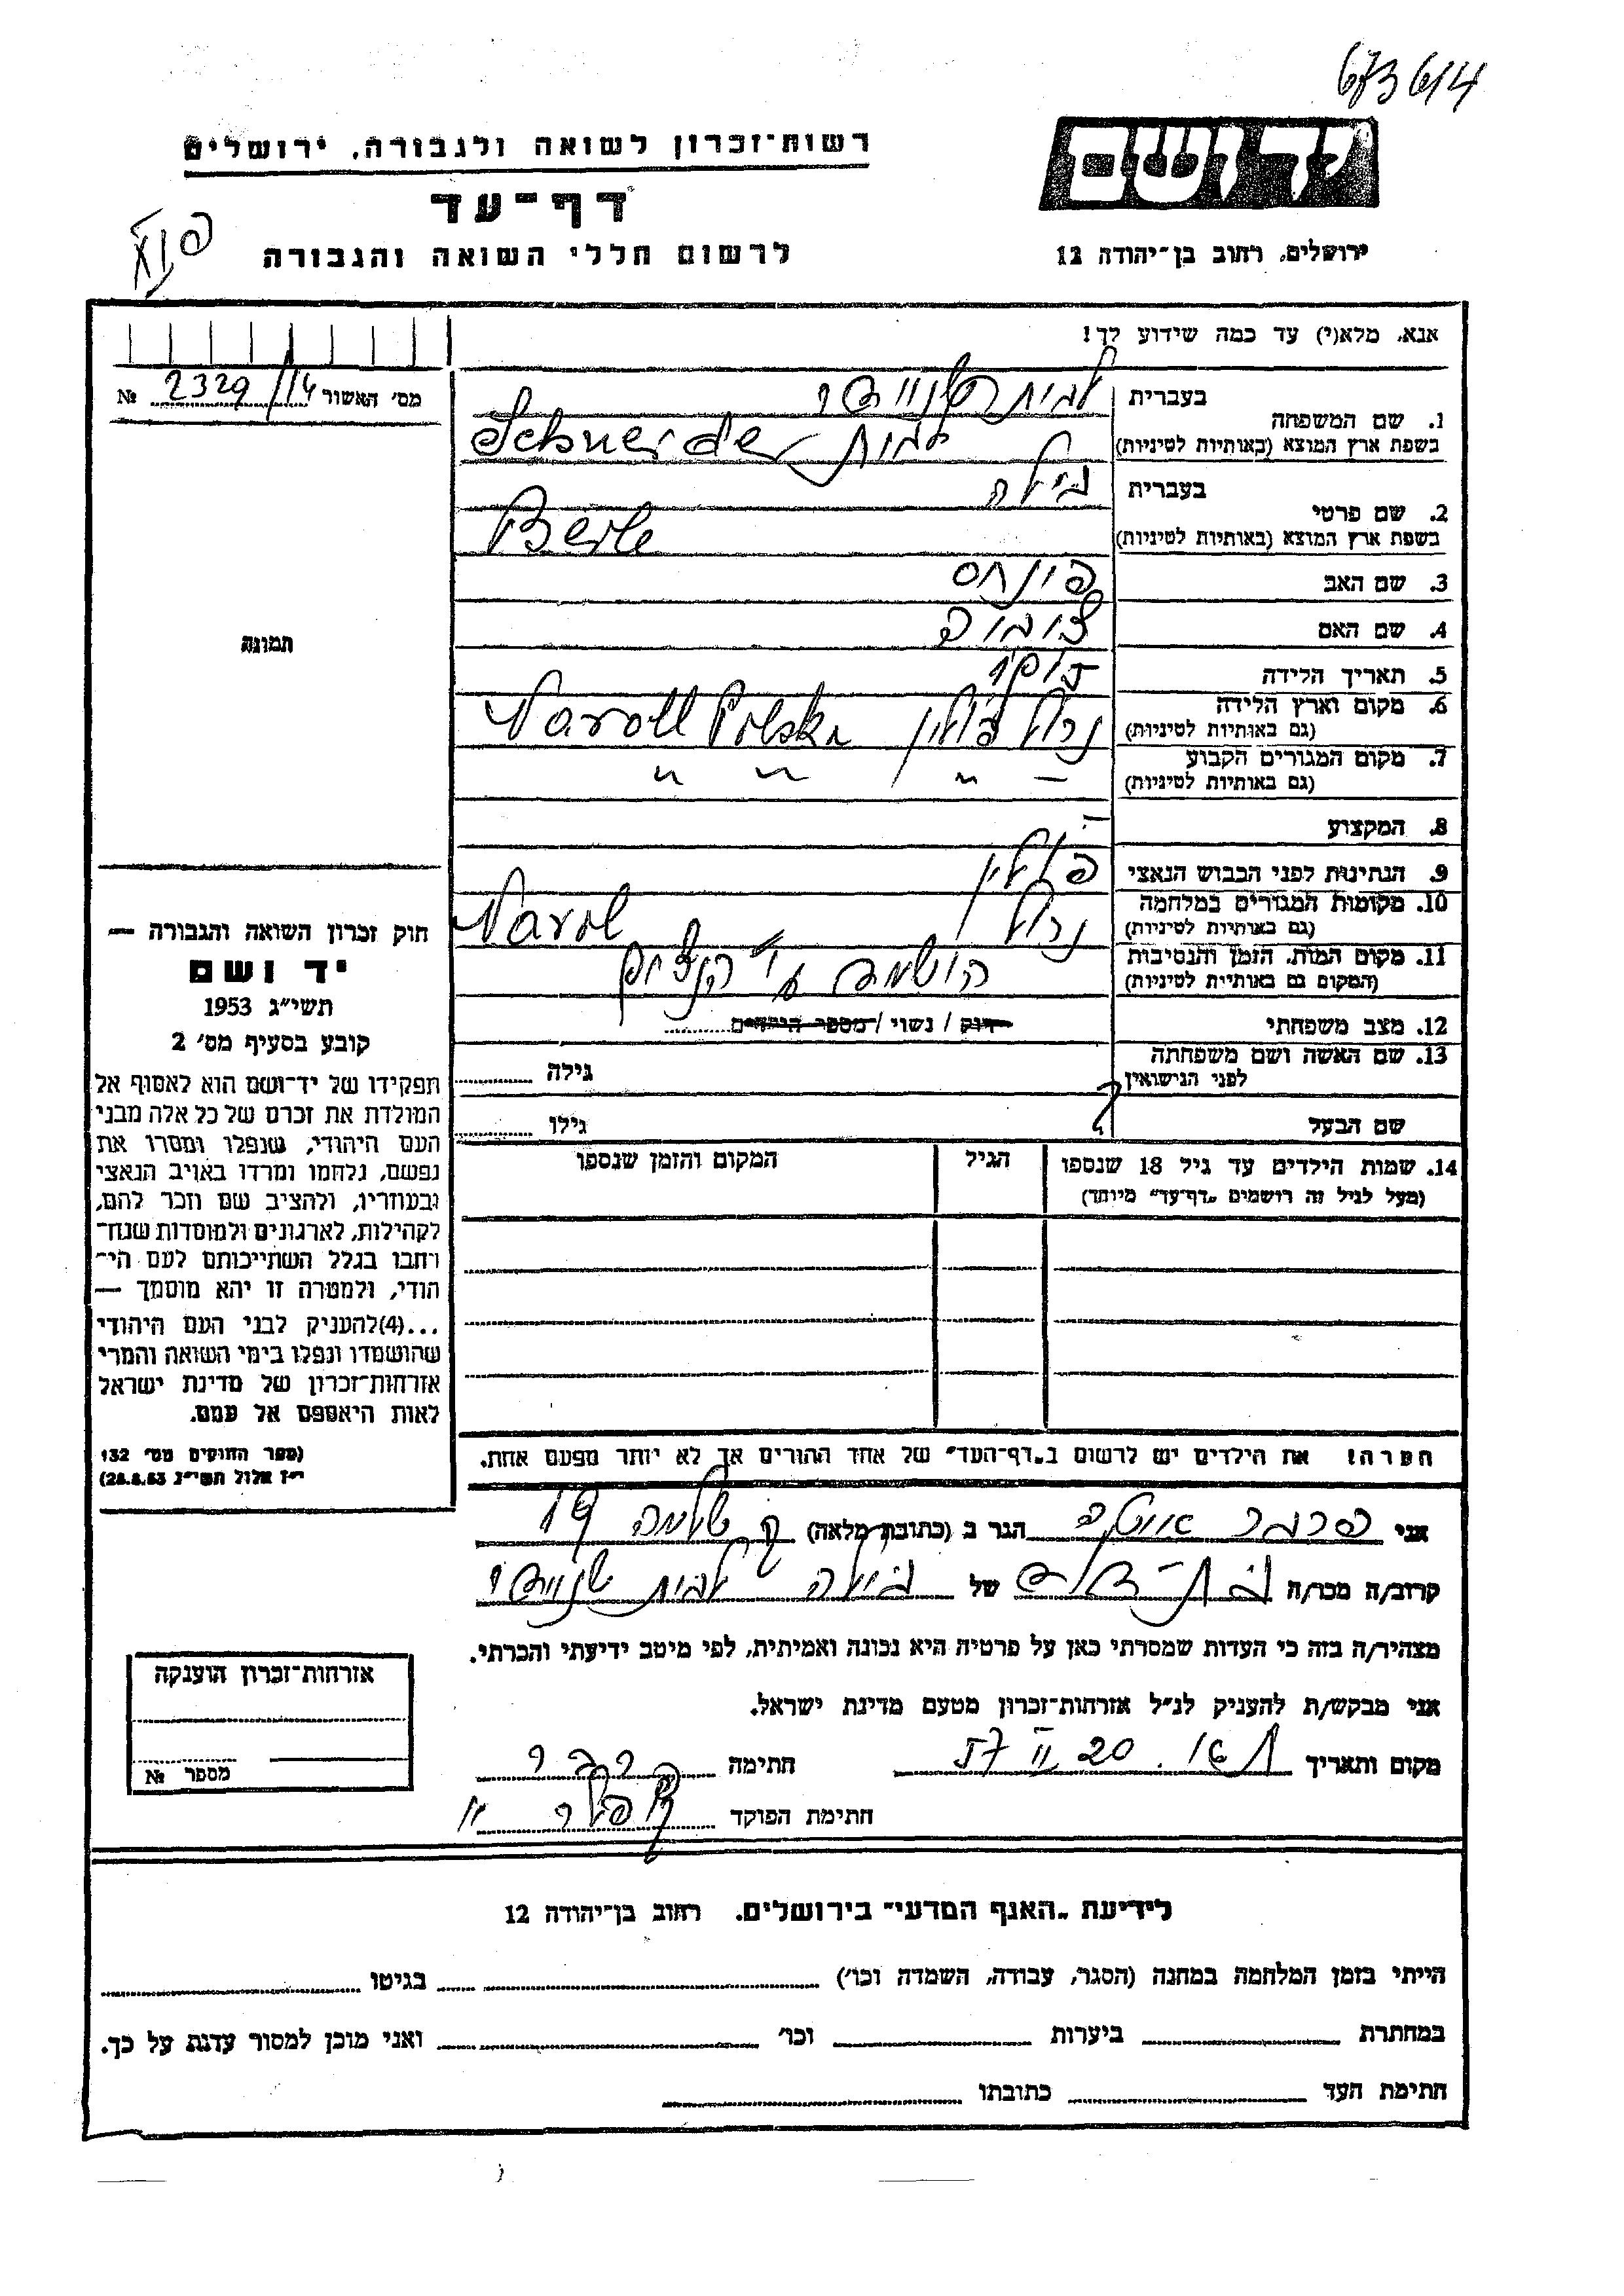 673614
יד ושם
רשות־זכרון לשואה ולגבורה, ירושלים
דף־עד
לרשום חללי השואה והגבורה
ירושלים, רחוב בן־יהודה 12
אנא, מלא(י) עד כמה שידוע לך!
מס' האשור 2329/14 №
1. שם המשפחה
בעברית לבית שניידר
בשפת ארץ המוצא (באותיות לטיניות) Schneider לבית
2. שם פרטי
בעברית ביילה
בשפת ארץ המוצא (באותיות לטיניות) Beile
3. שם האב פינחס
4. שם האם
5. תאריך הלידה
6. מקום וארץ הלידה נרול פולין Naroll Polska
(גם באותיות לטיניות)
7. מקום המגורים הקבוע — " " "
(גם באותיות לטיניות)
8. המקצוע
9. הנתינות לפני הכבוש הנאצי פולין
10. מקומות המגורים במלחמה נרול Narol
(גם באותיות לטיניות)
11. מקום המות, הזמן והנסיבות הושמד ע"י הנצים
(המקום גם באותיית לטיניות)
12. מצב משפחתי רווק / נשוי / מספר הילדים
13. שם האשה ושם משפחתה
לפני הנישואין גילה
?
שם הבעל גילו
14. שמות הילדים עד גיל 18 שנספו הגיל המקום והזמן שנספו
(מעל לגיל זה רושמים "דף־עד" מיוחד)
תמונה
חוק זכרון השואה והגבורה —
יד ושם
תשי"ג 1953
קובע בסעיף מס' 2
תפקידו של יד־ושם הוא לאסוף אל
המולדת את זכרם של כל אלה מבני
העם היהודי, שנפלו ומסרו את
נפשם, נלחמו ומרדו באויב הנאצי
ובעוזריו, ולהציב שם וזכר להם,
לקהילות, לארגונים ולמוסדות שנח־
רחבו בגלל השתייכותם לעם הי־
הודי, ולמטרה זו יהא מוסמך —
...(4)להעניק לבני העם היהודי
שהושמדו ונפלו בימי השואה והמרי
אזרחות־זכרון של מדינת ישראל
לאות היאספם אל עמם.
(ספר החוקים מס' 132
י"ז אלול תשי"ג 28.8.53)
הערה! את הילדים יש לרשום ב"דף־העד" של אחד ההורים אך לא יותר מפעם אחת.
אני הגר ב (כתובת מלאה) שלמה 19
קרוב/ה מכר/ה בת־דוד של ביילה לבית שניידר
מצהיר/ה בזה כי העדות שמסרתי כאן על פרטיה היא נכונה ואמיתית, לפי מיטב ידיעתי והכרתי.
אני מבקש/ת להעניק לנ"ל אזרחות־זכרון מטעם מדינת ישראל.
מקום ותאריך ת"א. 20 II 57 חתימה
חתימת הפוקד
אזרחות־זכרון הוענקה
מספר №
לידיעת "האגף המדעי" בירושלים. רחוב בן־יהודה 12
הייתי בזמן המלחמה במחנה (הסגר, עבודה, השמדה וכו') בגיטו
במחתרת ביערות וכו' ואני מוכן למסור עדות על כך.
חתימת העד כתובתו